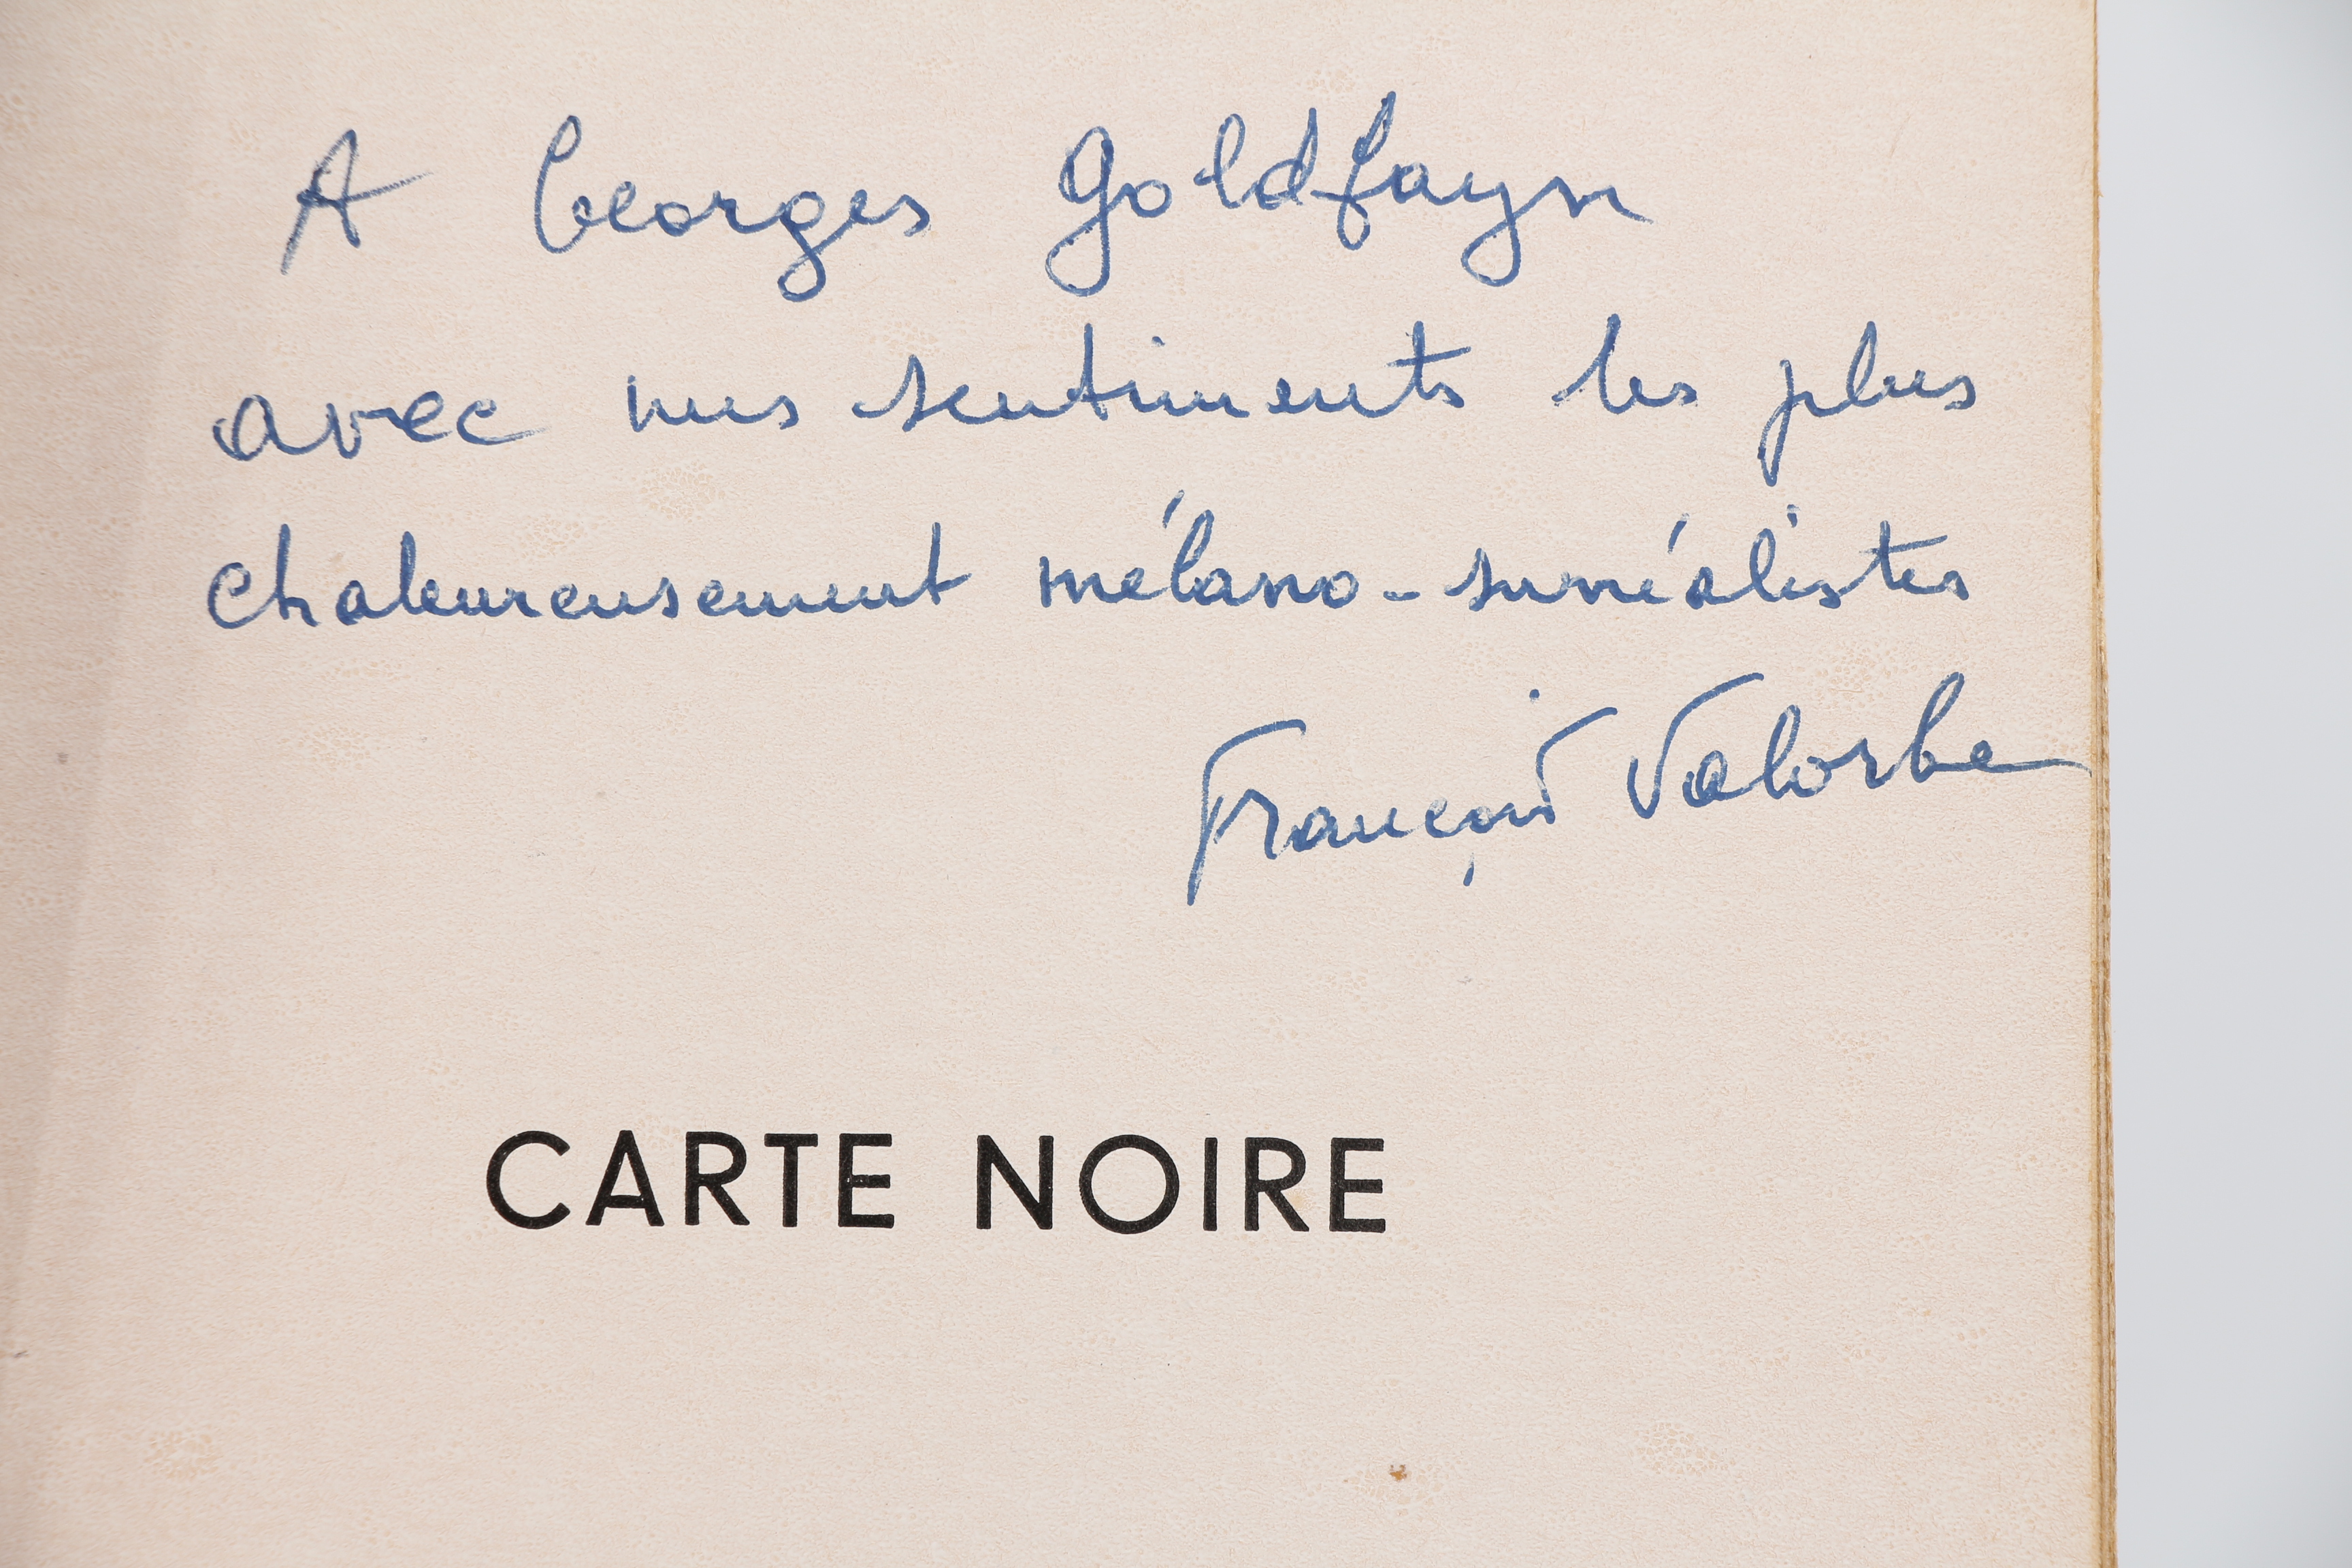 A Georges Goldfayn
avec mes sentiments les plus
chaleureusement mélano-surréalistes
François Valorbe
CARTE NOIRE